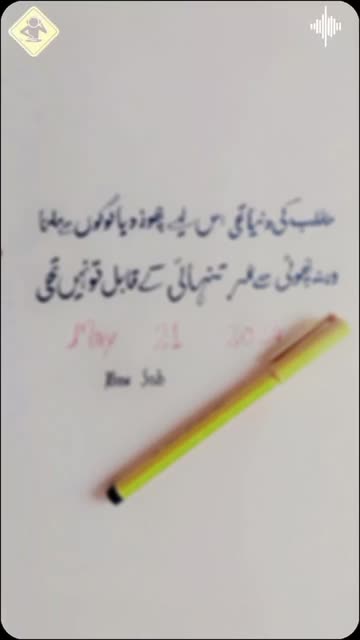 مطلب کی دنیا تھی اس لیے چھوڑ دیا لوگوں سے ملنا
ورنہ چھوٹی سے عمر تنہائی کے قابل تو نہیں تھی
May 21